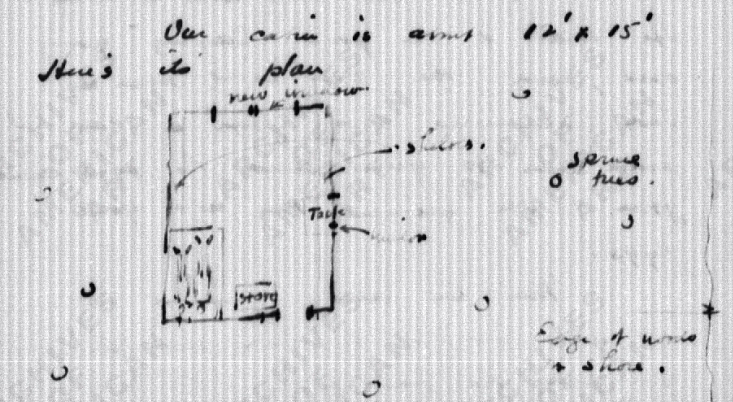 Our cabin is about 12' x 15'
Here's its plan
new window
shelves.
spruce
trees.
Table
window
Stove
Edge of woods
& shore.